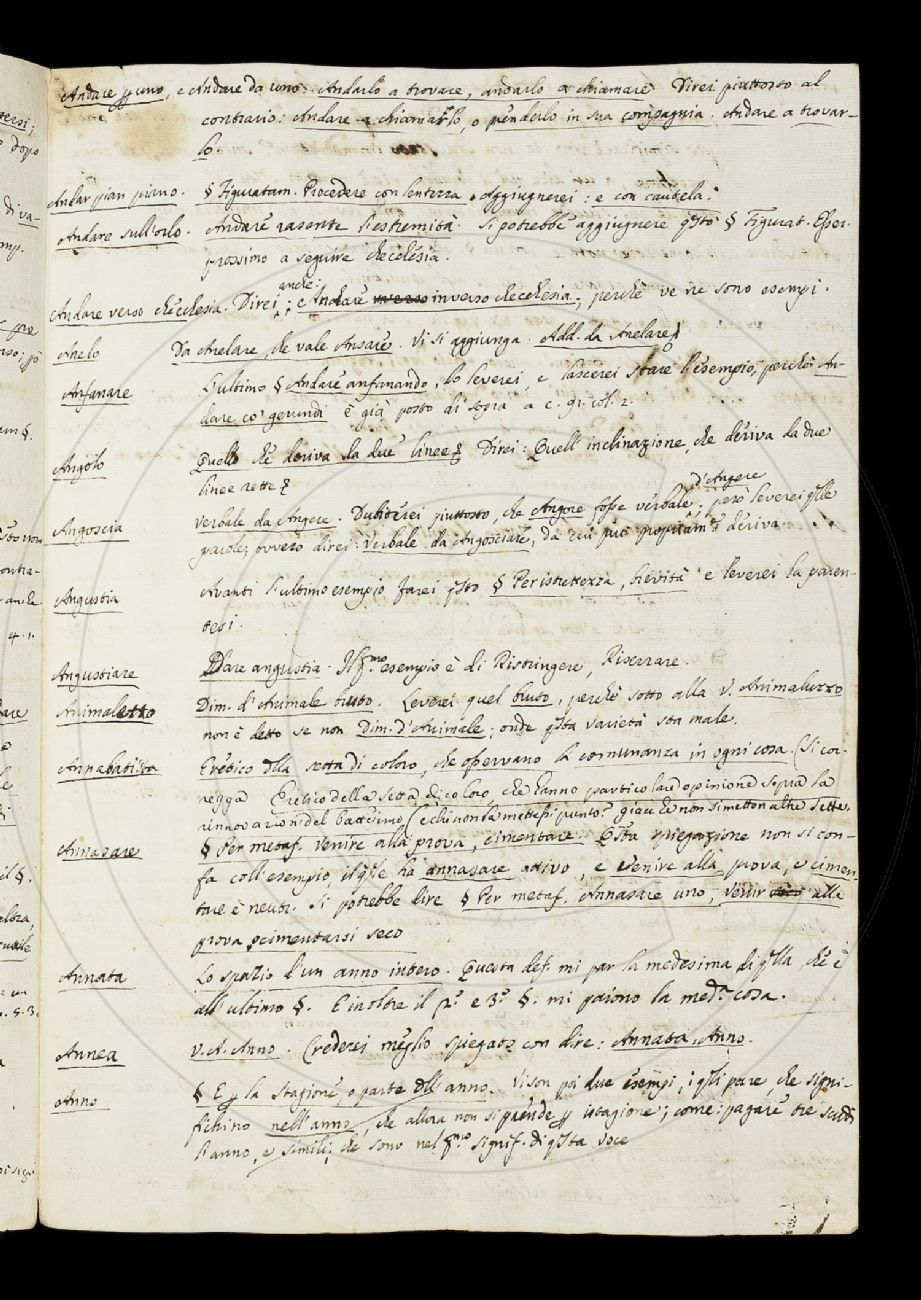 Andare ꝑ uno, e Andare da uno. Andarlo a trovare, andarlo a chiamare. Direi piuttosto al
contrario: Andare a chiamarlo, o prenderlo in sua compagnia. Andare a trovar-
lo.
Andar pian piano. § Figuratam. Procedere con lentezza. Aggiugnerei: e con cautela.
Andare sull'orlo. Andare rasente l'estremità. Si potrebbe aggiugnere qsto § Figurat. Esser
prossimo a seguire checchesia.
anche:
Andare verso chècchesia. Direi: e Andare inverso checchesia, perchè ve ne sono esempi.
Anelo Da Anelare, che vale Ansare. Vi si aggiunga. Add. da Anelare.
Anfanare L'ultimo § Andare anfanando, lo leverei, e lascerei stare l'esempio, perchè An-
dare co' gerundi è già posto di sopra a c. 91. col. 2.
Angolo Quello che deriva da due linee Direi: Quell'inclinazione, che deriva da due
linee rette
d'Angere
Angoscia Verbale da Angere. Dubiterei piuttosto, che Angore fosse verbale; però leverei qlle
parole, ovvero direi: Verbale da Angosciare, da cui più propriam.te deriva.
Angustia Avanti l'ultimo esempio farei qsto § Per istrettezza, brevità e leverei la paren-
tesi.
Angustiare Dare angustia. Il pmo esempio è di Ristringere, Riserrare.
Animaletto Dim. d'Animale bruto. Leverei quel bruto, perchè sotto alla V. Animaluzzo
non è detto se non Dim. d'Animale; onde qsta varietà sta male.
Annabatista Eretico dlla setta di coloro, che osservano la comunanza in ogni cosa. (Si cor-
regga Eretico della setta di coloro, che hanno particolare opinione sopra la
rinnovazion del Battesimo
Annasare § Per metaf. Venire alla prova, cimentare. Qsta spiegazione non si con-
fà coll'esempio, il qle ha annasare attivo, e Venire alla prova, e cimen-
tare è neutr. Si potrebbe dire § Per metaf. Annasare uno, venir alla
prova, cimentarsi seco
Annata Lo spazio d'un anno intero. Questa def. mi par la medesima di qlla che è
all'ultimo §. E inoltre il p.o e 3.o §. mi paiono la med.a cosa.
Annea V. A. Anno. Crederei meglio spiegato con dire: Annata, Anno.
Anno § E ꝑ la Stagione, o parte dll'anno. Vi son poi due esempi, i qli pare, che signi-
fichino nell'anno, che allora non si prende ꝑ istagione; come: pagare tre scudi
l'anno, e simili; che sono nel pmo signif. di qsta voce